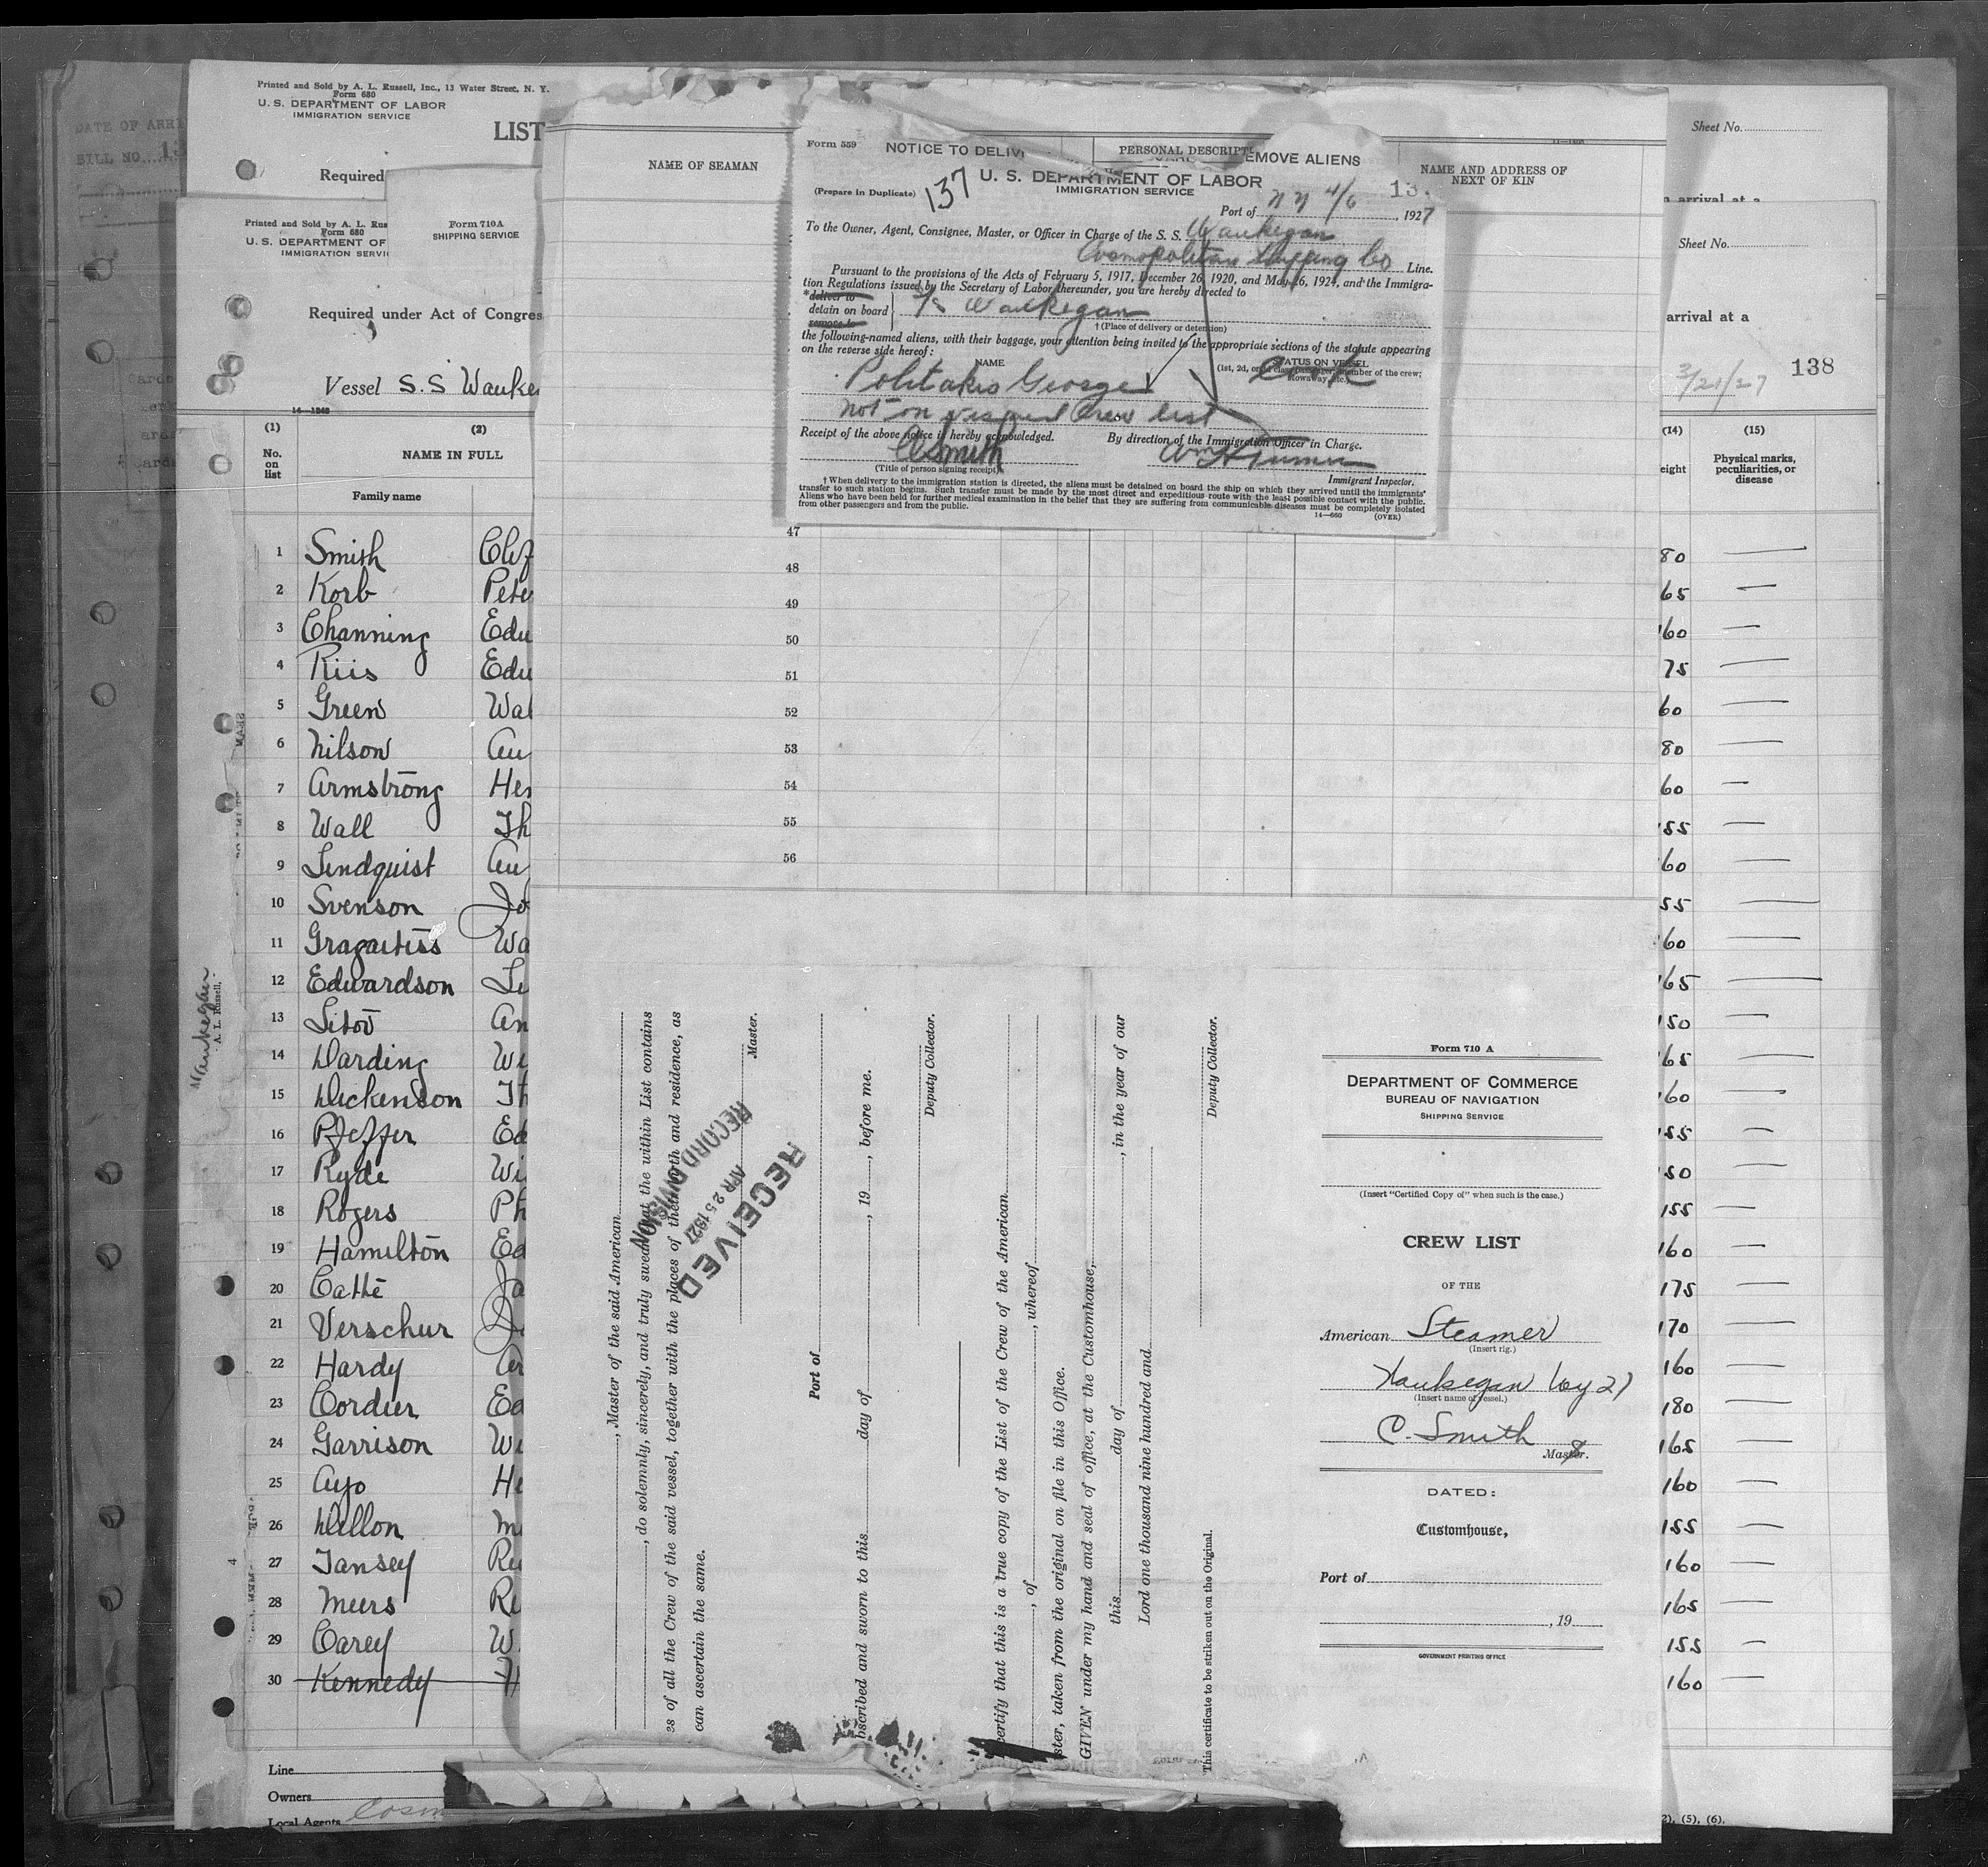 DATE OF ARRI
BILL NO. 13
Printed and Sold by A. L. Russell, Inc., 13 Water Street, N. Y.
Form 680
U. S. DEPARTMENT OF LABOR
IMMIGRATION SERVICE
LIST
Required
Printed and Sold by A. L. Rus
Form 680
U. S. DEPARTMENT OF
IMMIGRATION SERVI
Form 710A
SHIPPING SERVICE
Required under Act of Congres
Vessel S.S Wauke
14—1240
(1)
No.
on
list
(2)
NAME IN FULL
Family name
1 Smith
2 Korb Pete
3 Channing Edw
4 Riis Edw
5 Green Wal
6 Nilson Au
7 Armstrong Hen
8 Wall Th
9 Lindquist Au
10 Svenson Jo
11 Gragartiss Wa
12 Edwardson Le
13 Sitov An
14 Harding Wi
15 Dickenson Th
16 Pfeffer Ed
17 Ryde Wi
18 Rogers Ph
19 Hamilton Ed
20 Cathe Ja
21 Verschur
22 Hardy Ar
23 Cordier Ed
24 Garrison Wi
25 Ayo He
26 Dillon M
27 Tansey Ru
28 Meers Re
29 Carey W.
30 Kennedy H
Line
Owners
Local Agents Cosm
Waukegan
A. L. Russell,
NAME OF SEAMAN
PERSONAL DESCRIPT
NAME AND ADDRESS OF
NEXT OF KIN
Form 559
NOTICE TO DELIV
EMOVE ALIENS
137
(Prepare in Duplicate)
U. S. DEPARTMENT OF LABOR
IMMIGRATION SERVICE
13
Port of NY 4/6, 1927
To the Owner, Agent, Consignee, Master, or Officer in Charge of the S. S. Waukegan
Cosmopolitan Shipping Co Line.
Pursuant to the provisions of the Acts of February 5, 1917, December 26, 1920, and May 26, 1924, and the Immigra-
tion Regulations issued by the Secretary of Labor thereunder, you are hereby directed to
*deliver to
detain on board
remove to
S/S Waukegan
† (Place of delivery or detention)
the following-named aliens, with their baggage, your attention being invited to the appropriate sections of the statute appearing
on the reverse side hereof:
NAME
STATUS ON VESSEL
(1st, 2d, or 3d class passenger; member of the crew;
stowaway, etc.)
Politakis George
not on visaed Crew list
Receipt of the above notice is hereby acknowledged.
By direction of the Immigration Officer in Charge.
C Smith
(Title of person signing receipt)
Immigrant Inspector.
† When delivery to the immigration station is directed, the aliens must be detained on board the ship on which they arrived until the immigrants'
transfer to such station begins. Such transfer must be made by the most direct and expeditious route with the least possible contact with the public.
Aliens who have been held for further medical examination in the belief that they are suffering from communicable diseases must be completely isolated
from other passengers and from the public.
14—660
(OVER)
47
48
49
50
51
52
53
54
55
56
, Master of the said American
, do solemnly, sincerely, and truly swear that the within List contains
es of all the Crew of the said vessel, together with the places of their birth and residence, as
can ascertain the same.
Master.
RECEIVED
APR 25 1927
RECORD DIVISION
Port of
bscribed and sworn to this day of , 19 , before me.
Deputy Collector.
certify that this is a true copy of the List of the Crew of the American
, of , whereof
ster, taken from the original on file in this Office.
GIVEN under my hand and seal of office, at the Customhouse,
this day of , in the year of our
Lord one thousand nine hundred and
Deputy Collector.
This certificate to be striken out on the Original.
Form 710 A
DEPARTMENT OF COMMERCE
BUREAU OF NAVIGATION
SHIPPING SERVICE
(Insert "Certified Copy of" when such is the case.)
CREW LIST
OF THE
American Steamer
(Insert rig.)
Waukegan Voy 21
(Insert name of vessel.)
C. Smith
Master.
DATED:
Customhouse,
Port of
, 19
GOVERNMENT PRINTING OFFICE
Sheet No.
n arrival at a
Sheet No.
arrival at a
3/21/27
138
(14)
eight
(15)
Physical marks,
peculiarities, or
disease
80
65
60
75
60
80
60
55
60
55
60
65
50
65
60
55
50
155
160
175
170
160
180
165
160
155
160
165
155
160
2), (5), (6).